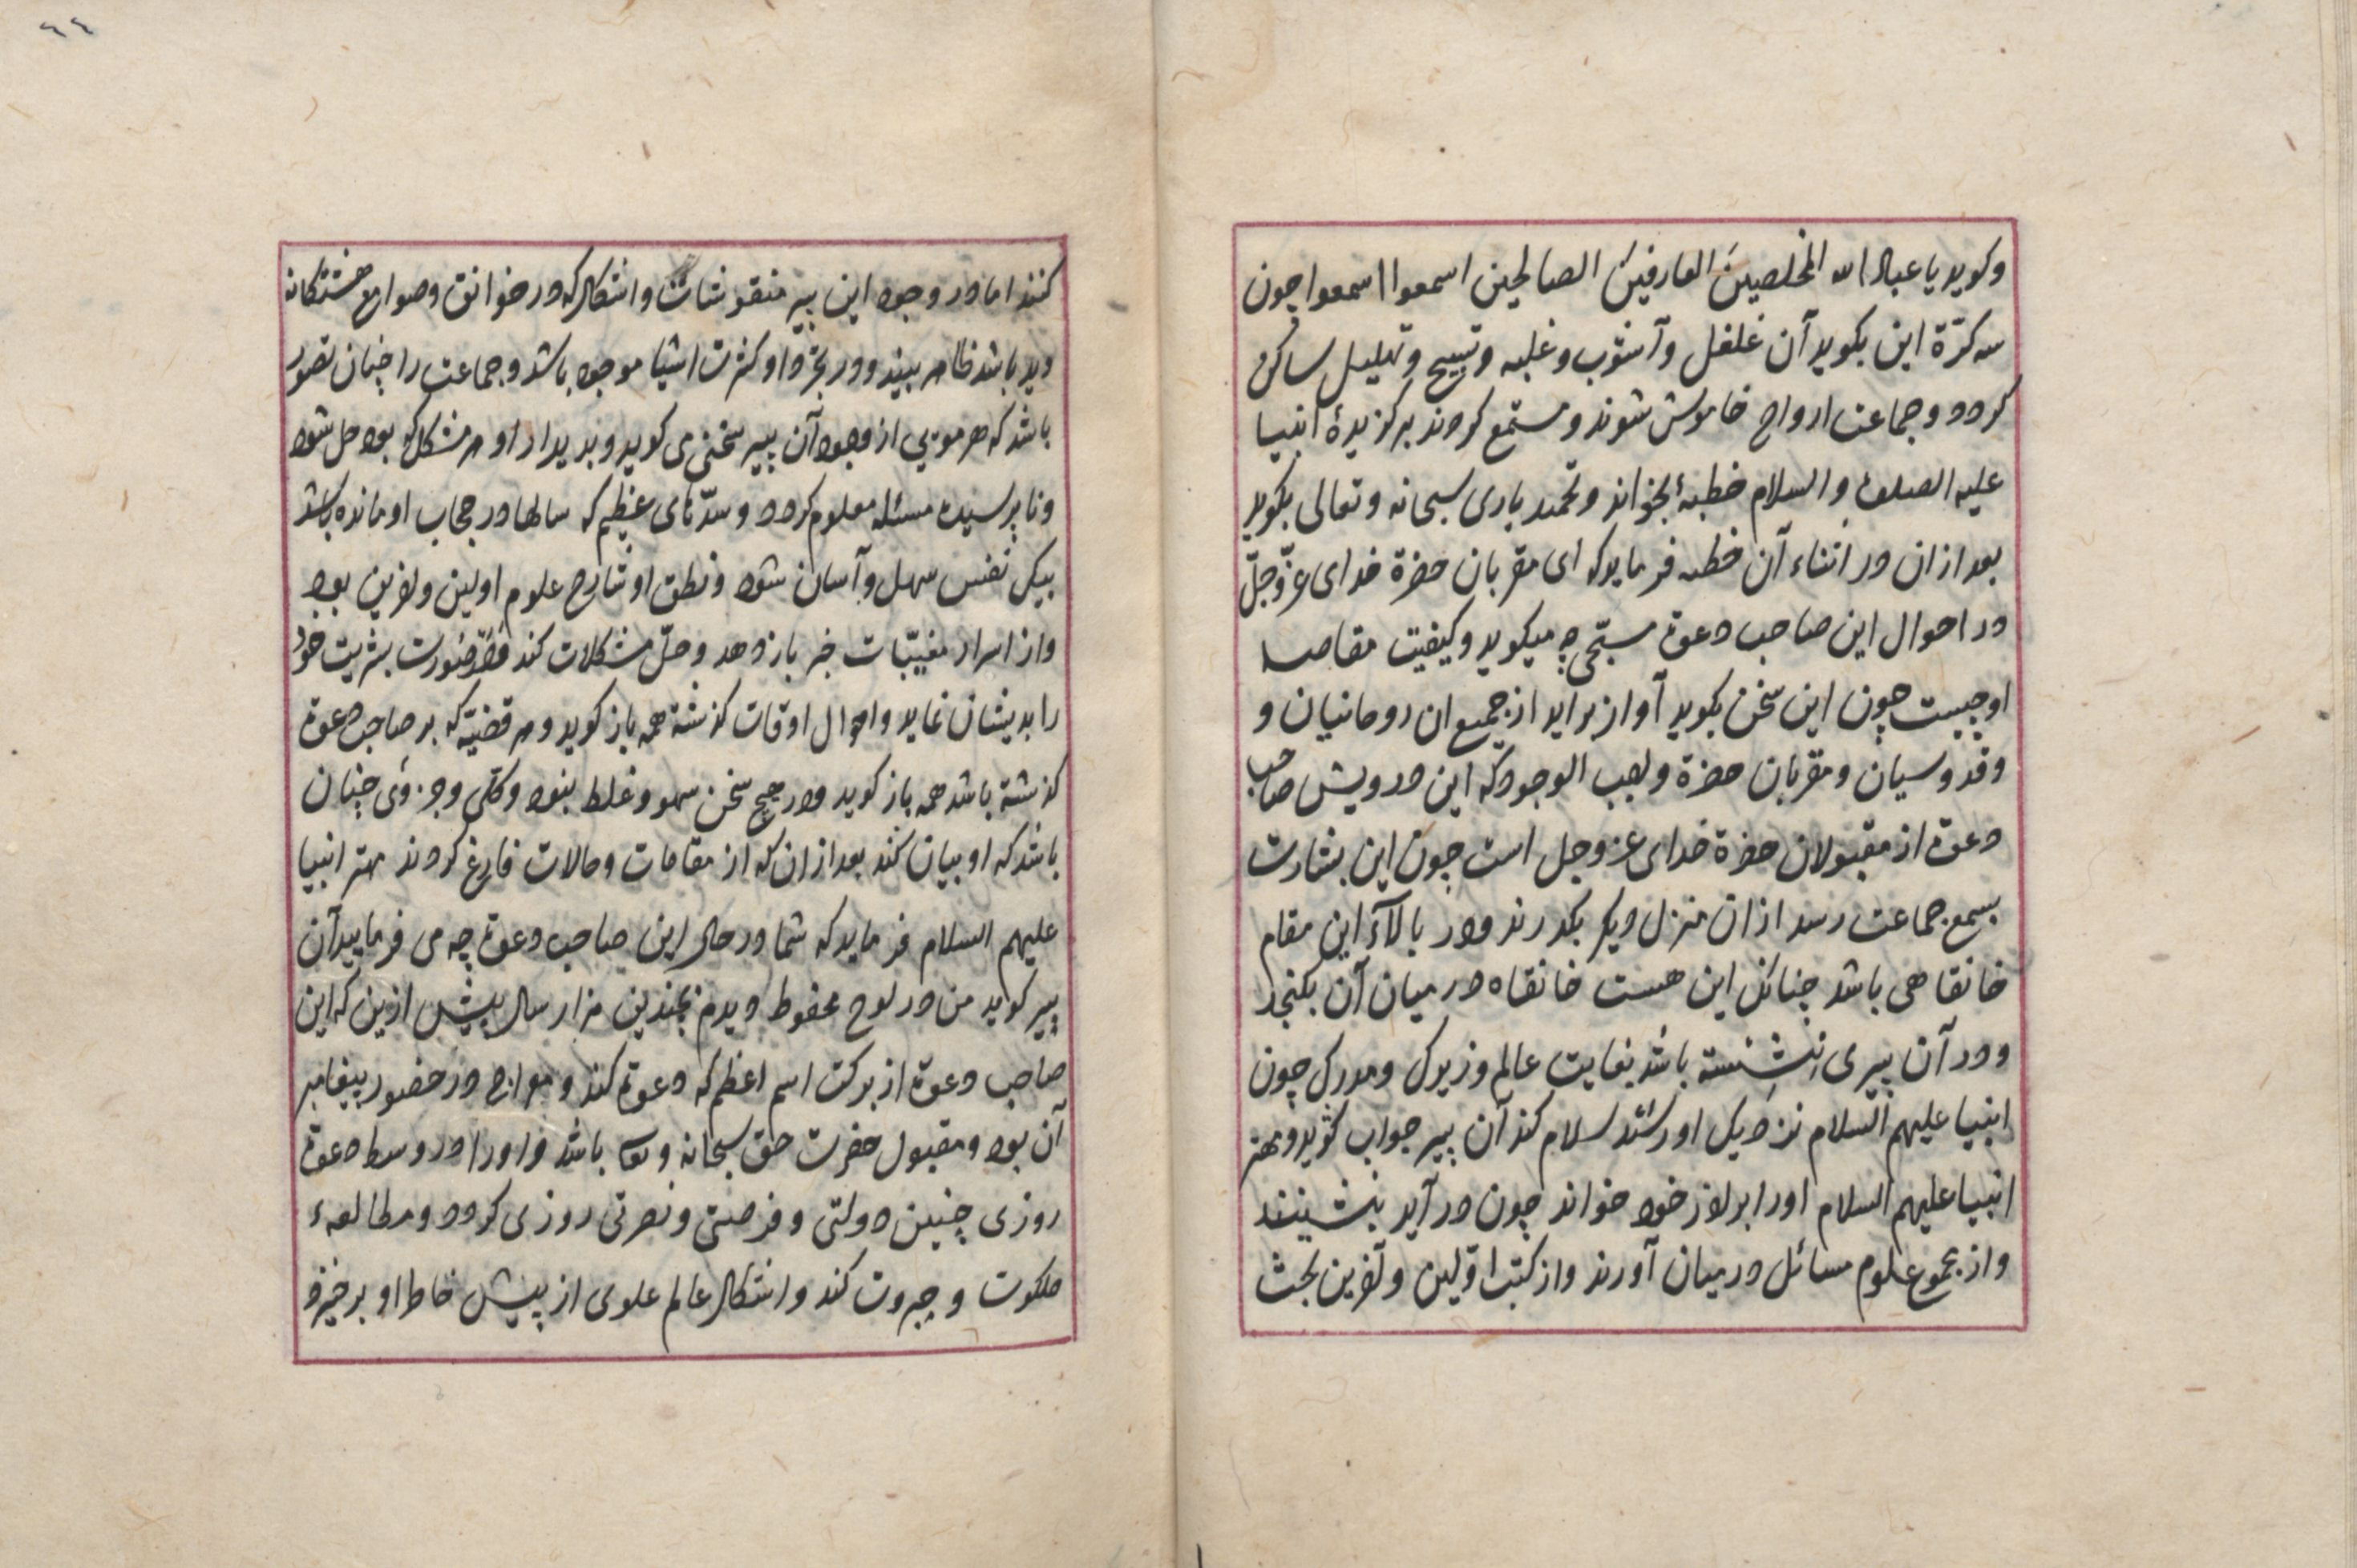 وکوید یا عباد الله المخلصینَ العارفینَ الصالحین اسمعوا اسمعوا چون
سه کرّة این بکوید آن غلغل وآشوب وغلبه وتسبیح وتهلیل ساکن
کردد وجماعت ارواح خاموش شوند ومستمع کردند برکزیدۀ انبیا
علیه الصلوة والسلام خطبۀ بخواند وتحمید باری سبحانه وتعالی بکوید
بعد ازان در اثناء آن خطبه فرماید که ای مقربان حضرة خدای عزّ وجلّ
در احوال این صاحب دعوة سبتحی چه میکوید وکیفیت مقاصد
او چیست چون این سخن بکوید آواز براید از جمیع ان روحانیان و
وقدوسیان ومقربان حضرة واجب الوجود که این درویش صاحب
دعوة از مقبولان حضرة خدای عز وجل است چون این بشارت
بسمع جماعت رسد ازان منزل دیکر بکذرند ودر بالآء این مقام
خانقاهی باشد چنانکه این هست خانقاه در میان آن بکنجد
ودر آن پیری نشسته باشد بغایت عالم وزیرک ومدرک چون
انبیا علیهم السلام نزدیک او رسند سلام کند آن پیر جواب کوید ومهتر
انبیا علیهم السلام اورا برادر خود خواند چون در آید بنشینند
واز مجموع علوم مسائل در میان آورند واز کتب اوّلین وآخرین بحث
٤٤
کنند اما در وجود این پیر منقوشات واشکال که در خوانق وصوامع هشتکانه
دید باشد ظاهر بیند ودر بحر داو کثرت اشیا موجود باشد وجماعت را چنان تصور
باشد که هر مویی از وجود آن پیر سخنی می کوید وبدیدار او هر مشکل که بود حل شود
ونا پرسیده مسئله معلوم کردد وسدّهای عظیم که سالها در حجاب او مانده باشد
بیک نفس سهل وآسان شود ونطق او شارح علوم اولین وآخرین بود
واز اسرار مغیّبات خبر باز دهد وحلّ مشکلات کند صورت بشریت خود
را بدیشان نماید واحوال اوقات کذشته همه باز کوید وهر قضیّه که بر صاحب دعوة
کذشته باشد همه باز کوید ودر هیچ سخن سهو وغلط بنود وکلی وجزوی چنان
باشد که او بیان کند بعد ازان که از مقامات وحالات فارغ کردند مهتر انبیا
علیهم السلام فرماید که شما در حال این صاحب دعوة چه می فرمایید آن
پیر کوید من در لوح محفوظ دیدم بچندین هزار سال پیش ازین که این
صاحب دعوة از برکت اسم اعظم که دعوة کند ومعراج در حضور پیغامبر
آن بود ومقبول حضرت حق سبحانه وتعا باشد واورا در وسط دعوة
روزی چنین دولتی وفرصتی ونصرتی روزی کردد ومطالعهء
ملکوت وجبروت کند واشکال عالم علوی از پیش خاطر او برخیزد